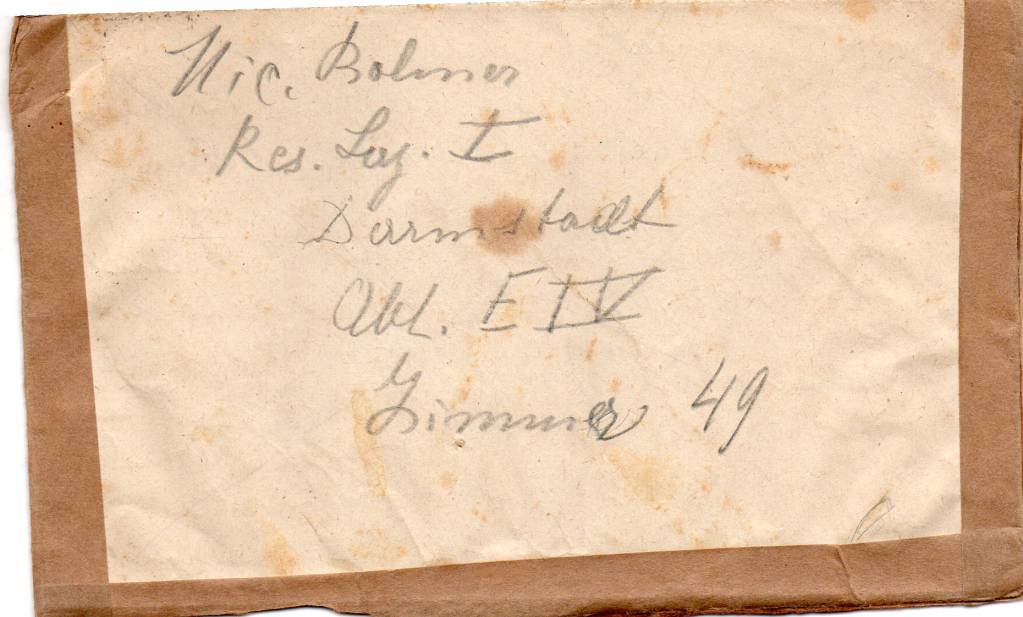 Nic. Bolmer
Res. Laz. I
Darmstadt
Abt. E IV
Zimmer 49